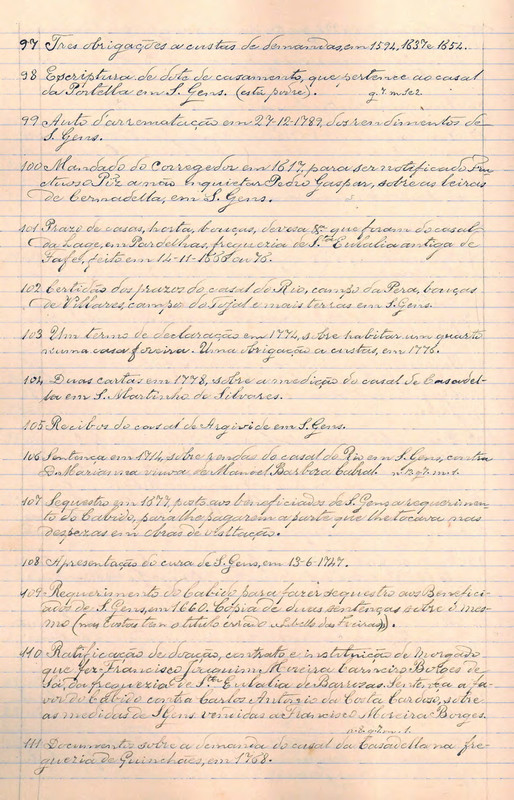 97 Tres obrigações a custas de demandas, em 1594, 1637 e 1654.
98 Escriptura de dote de casamento, que pertence ao casal
da Portella em S. Gens. (está podre).
99 Auto d'arrematação em 27-12-1789, dos rendimentos de
S. Gens.
100 Mandado do Corregedor em 1617, para ser notificado Fru
ctuoso Piz a não inquietar Pedro Gaspar, sobre as leiras
de Bernadella, em S. Gens.
101 Prazo de casas, horta, bouças, devesa &c que foram do casal
da Lage, em Pardelhas, freguezia de Sta Eulalia antiga de
Fafe, feito em 14-11-
102 Certidão dos prazos do casal do Rio, campo da Pera, bouças
de Villares, campo do Tojal e mais terras em S. Gens.
103 Um termo de declaração em 1774, sobre habitar um quarto
n'uma casa foreira. Uma obrigação a custas, em 1776.
104 Duas cartas em 1778, sobre a medição do casal de Casadel-
la em S. Martinho de Silvares.
105 Recibos do casal de Argivide em S. Gens.
106 Sentença em 1714, sobre rendas do casal do Rio em S. Gens, contra
D. Marianna viuva de Manoel Barboza Cabral.
107 Sequestro em 1677, posto aos beneficiados de S. Gens a requerimen-
to do Cabido, para lhe pagarem a parte que lhe tocava nas
despezas em obras de visitação.
108 Apresentação do cura de S. Gens, em 13-6-1747.
109 Requerimento do Cabido para fazer sequestro aos Benefici-
ados de S. Gens, em 1660. Copia de duas sentenças sobre o mes-
mo (nas costas tem o titulo errado «Libello das Leiras»).
110 Ratificação de doação, contrato e instituição de Morgado
que fez Francisco Joaquim Moreira Carneiro Borges de
Sá, da freguezia de Sta Eulalia de Barrosas. Sentença a fa-
vor do Cabido contra Carlos Antonio da Costa Cardoso, sobre
as medidas de S. Gens vendidas a Francisco Moreira Borges.
111 Documentos sobre a demanda do casal da Casadella na fre-
guezia de Guinchães, em 1768.